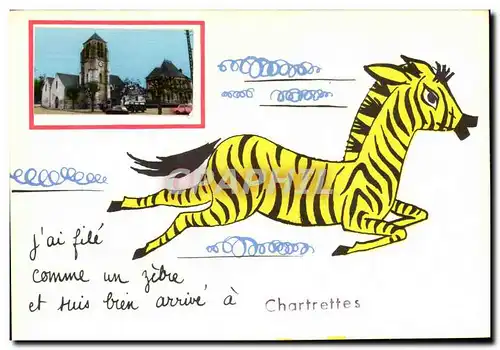 j'ai filé
comme un zèbre
et suis bien arrivé à Chartrettes
GRAPHIL